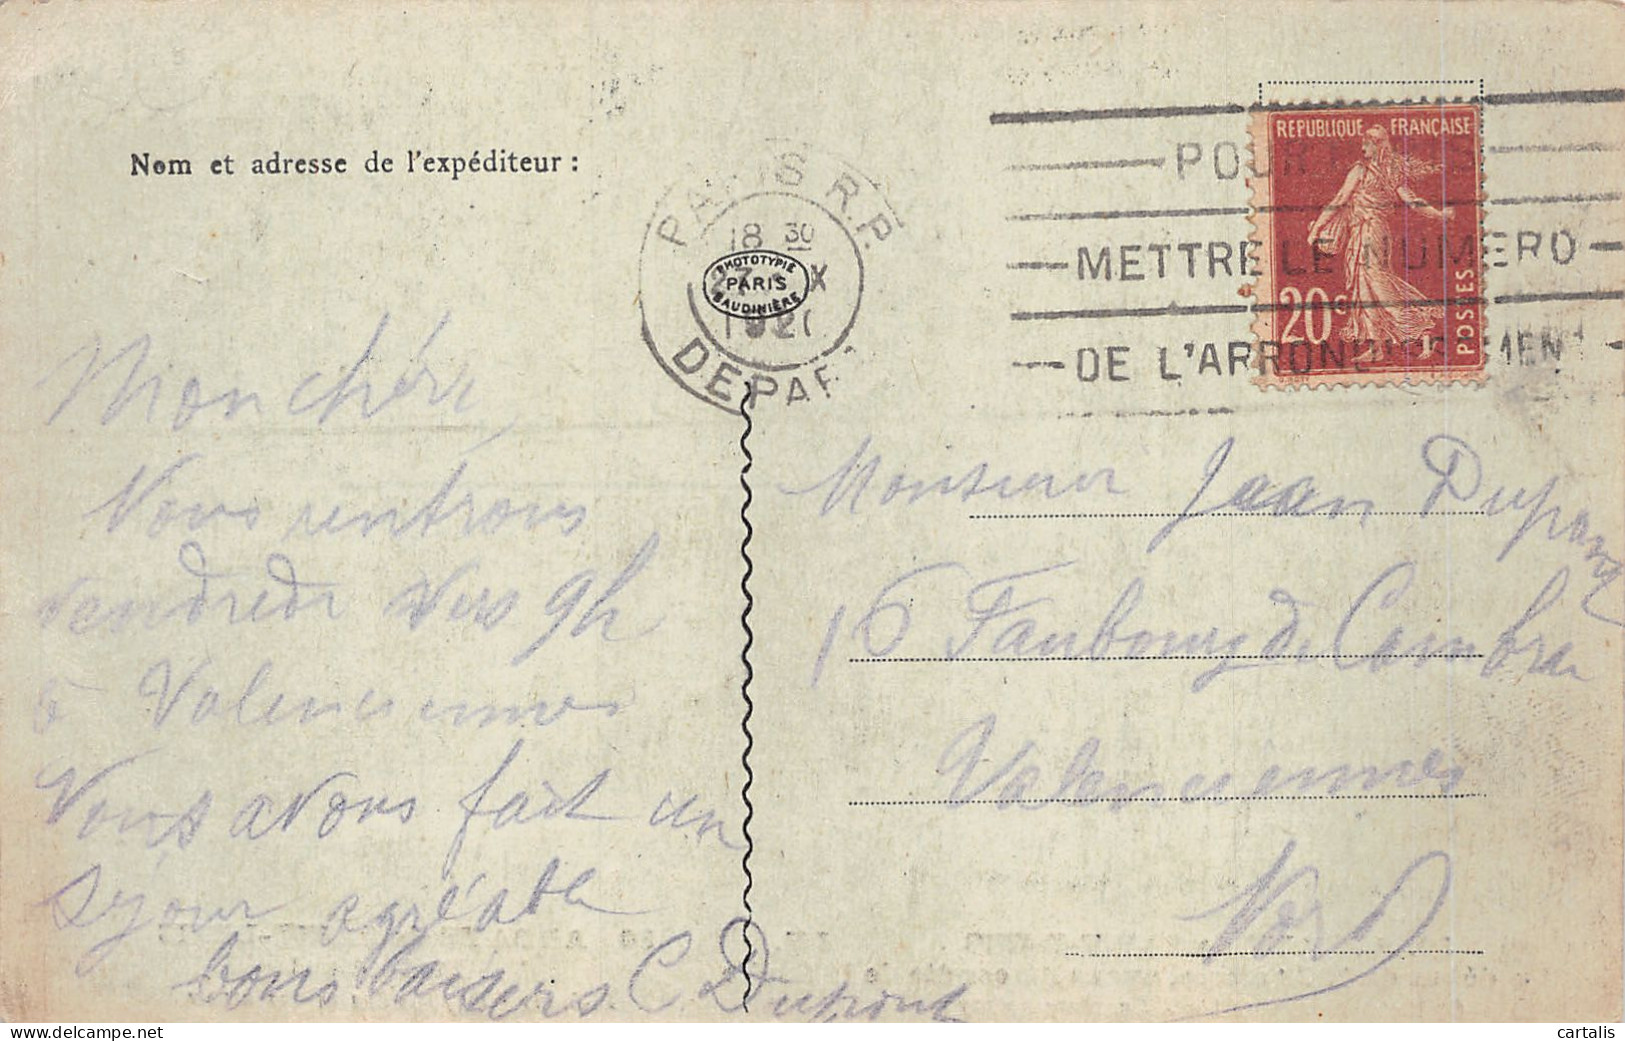 Nom et adresse de l'expéditeur :
PARIS R.P.
18 30
DEPAR
PHOTOTYPIE
PARIS
BAUDINIÈRE
POUR
METTRE LE NUMERO
DE L'ARRONDISSEMENT
REPUBLIQUE FRANÇAISE
20c
POSTES
Mon chéri
Nous rentrons
vendredi vers 9h
à Valenciennes
Nous avons fait un
séjour agréable
bons baisers C Dupont
Monsieur Jean Dupont
16 Faubourg de Cambrai
Valenciennes
Nord
cartalis